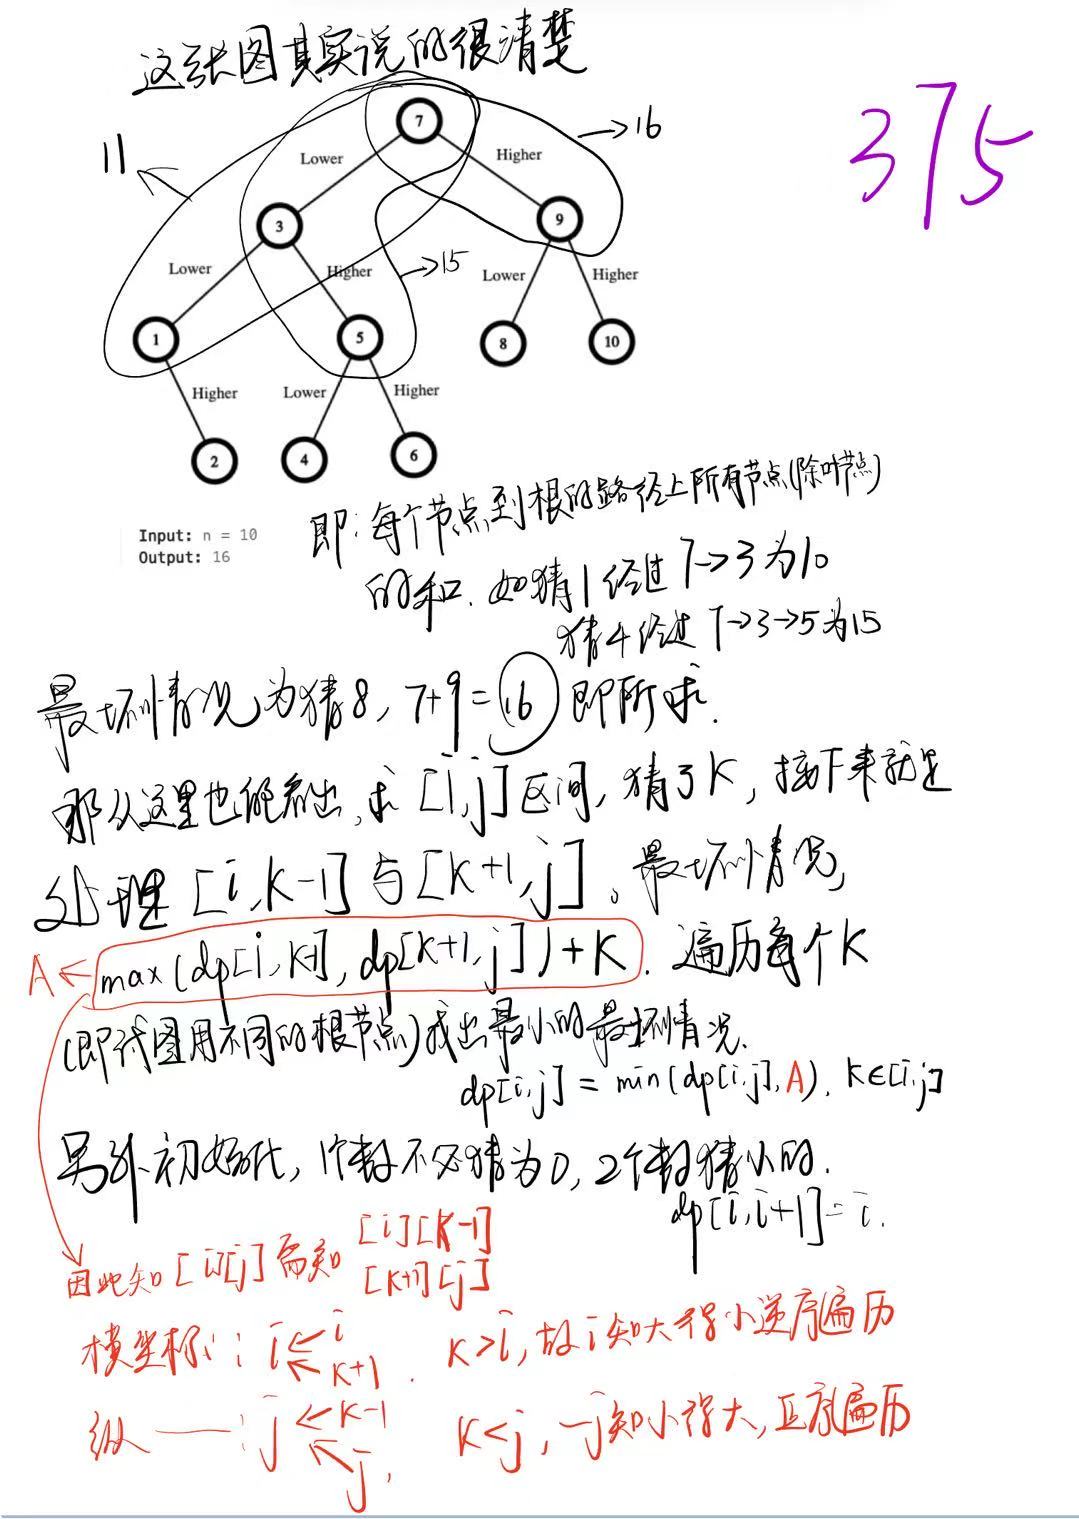 这张图其实说的很清楚
375
7
→16
11
Lower
Higher
3
9
Lower
Higher
→15
Lower
Higher
1
5
8
10
Higher
Lower
Higher
2
4
6
Input: n = 10
Output: 16
即:每个节点到根的路径上所有节点(除叶节点)
的和. 如猜1经过 7→3为10
猜4经过 7→3→5为15
最坏情况为猜8, 7+9=16 即所求.
那么这里也能看出,求 [i,j]区间, 猜了K, 接下来就是
处理 [i,K-1] 与 [K+1,j]。最坏情况,
A← max(dp[i,K-1], dp[K+1,j])+K. 遍历每个K
(即试图用不同的根节点)找出最小的最坏情况.
dp[i,j] = min(dp[i,j],A). K∈[i,j]
另外初始化, 1个数不必猜为0, 2个数猜小的.
dp[i,i+1]=i.
因此知 [i][j] 需知 [i][K-1]
[K+1][j]
横坐标: i ← i
← K+1 . K>i, 故i知大得小逆序遍历
纵 —— : j ← K-1
← j , K<j, j知小得大, 正序遍历